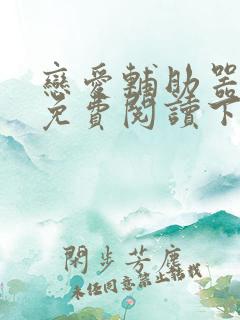 戀愛輔助器
免費閱讀下
閑步芳塵
未經同意禁止轉載